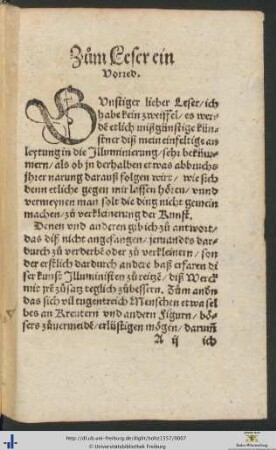 Zům Leser ein
Vorred.
GVnstiger lieber Leser/ich
habe kein zweiffel/es wer-
dē etlich mißgünstige kün-
stner diß mein einfeltige an
leytung in die Illuminierung/sehr bekům-
mern/als ob jn derhalben etwas abbruchs
jhrer narung darauß folgen würt/wie sich
denn etliche gegen mir lassen hören/vund
vermeynen man solt die ding nicht gemein
machen/zů verkleinerung der Kunst.
Denen vnd anderen gib ich zů antwort/
das diß nicht angefangen/jemandts dar-
durch zů verderbē oder zů verkleinern/son
der erstlich dardurch andere baß erfaren di
ser kunst Illuministen zů reitzē/diß Werck
mir prē zůsatz teglich zůbessern. Zům andn
das sich vil tugentreich Menschen etwa sel
bes an Kreutern vnd andern Figurn/bö-
sers zůuermeidē/erlüstigen mögen/darum̄
A ij ich
http://dl.ub.uni-freiburg.de/diglit/boltz1557/0007
© Universitätsbibliothek Freiburg
Baden-Württemberg